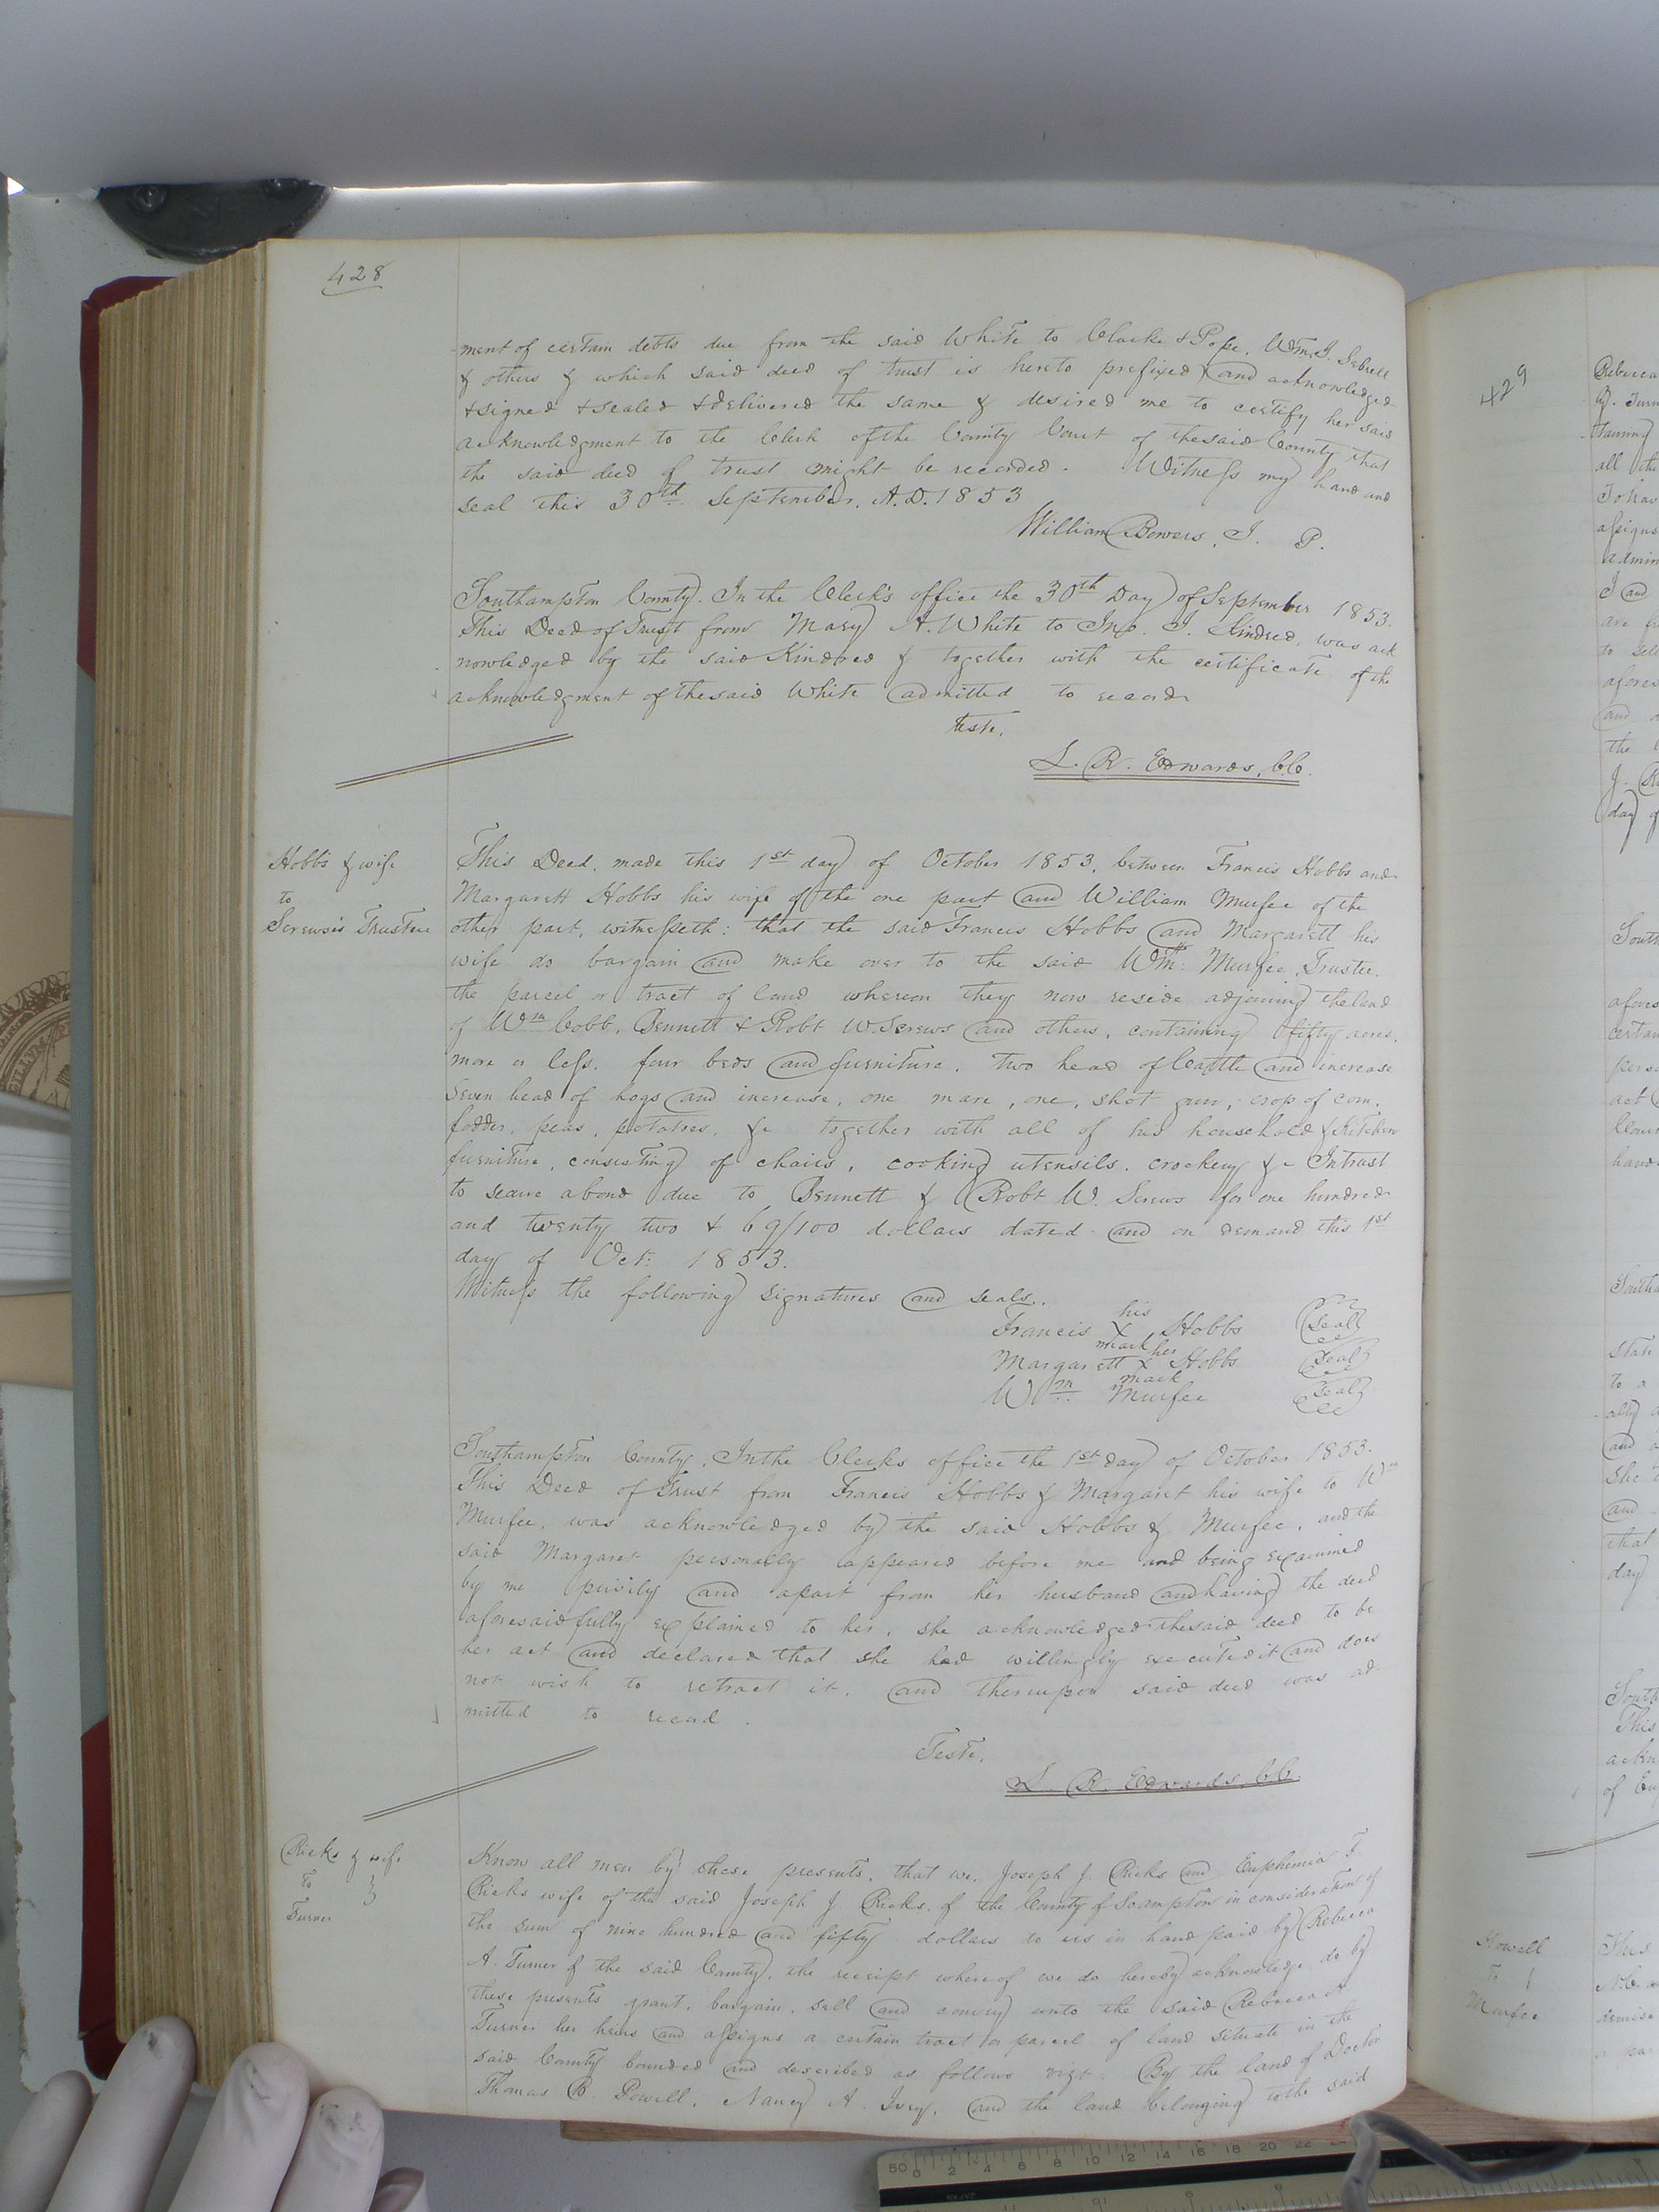 428
-ment of certain debts due from the said White to Clarke & Pope, Wm. J. Sebrell
& others & which said deed of trust is hereto prefixed and acknowledged
& signed & sealed & delivered the same & desired me to certify her said
acknowledgment to the Clerk of the County Court of the said County that
the said deed of trust might be recorded. Witness my hand and
seal this 30th September, A.D. 1853
William Bowers, J. P.
Southampton County. In the Clerk's office the 30th Day of September 1853.
This Deed of Trust from Mary A. White to Jno. J. Kindred, was ack
nowledged by the said Kindred & together with the certificate of the
acknowledgment of the said White admitted to record
Teste,
L. R. Edwards, C.C.
Hobbs & wife
to
Screws's Trustee
This Deed, made this 1st day of October 1853, between Francis Hobbs and
Margarett Hobbs his wife of the one part and William Murfee of the
other part, witnesseth: that the said Francis Hobbs and Margarett his
wife do bargain and make over to the said Wm: Murfee, Trustee.
the parcel or tract of land whereon they now reside adjoining the land
of Wm Cobb, Bennett & Robt W. Screws and others, containing fifty acres,
more or less. four beds and furniture, two head of Cattle and increase
Seven head of hogs and increase, one mare, one, shot gun, crop of corn,
fodder, peas, potatoes, &c together with all of his household & kitchen
furniture, consisting of chairs, cooking utensils, crockery &c Intrust
to secure a bond due to Bennett & Robt W. Screws for one hundred
and twenty two & 69/100 dollars dated and on demand this 1st
day of Oct: 1853.
Witness the following signatures and seals.
his
Francis X Hobbs (Seal)
mark her
Margarett X Hobbs (Seal)
mark
Wm. Murfee (Seal)
Southampton County, In the Clerks office the 1st day of October 1853.
This Deed of Trust from Francis Hobbs & Margaret his wife to Wm
Murfee, was acknowledged by the said Hobbs & Murfee, and the
said Margaret personally appeared before me and being examined
by me privily and apart from her husband and having the deed
aforesaid fully explained to her, she acknowledged the said deed to be
her act and declared that she had willingly executed it and does
not wish to retract it, and thereupon said deed was ad-
mitted to record.
Teste,
L. R. Edwards, C.C.
Ricks & wife
To
Turner
Know all men by these presents, that we, Joseph J. Ricks and Euphemia F.
Ricks wife of the said Joseph J. Ricks, of the County of Soampton in consideration of
the sum of nine hundred and fifty dollars to us in hand paid by Rebecca
A. Turner of the said County, the receipt whereof we do hereby acknowledge, do by
these presents grant, bargain, sell and convey unto the said Rebecca A.
Turner her heirs and assigns a certain tract or parcel of land situate in the
said County bounded and described as follows vizt: By the land of Doctor
Thomas B. Powell, Nancy A. Ivey, and the land belonging to the said
429
Rebecca
all
and
the
day
South
certain
act
hand
State
to a
and
she
and
that
day
South
This
Howell
To
Murfee
This
50 0 2 4 6 8 10 12 14 16 18 20 22